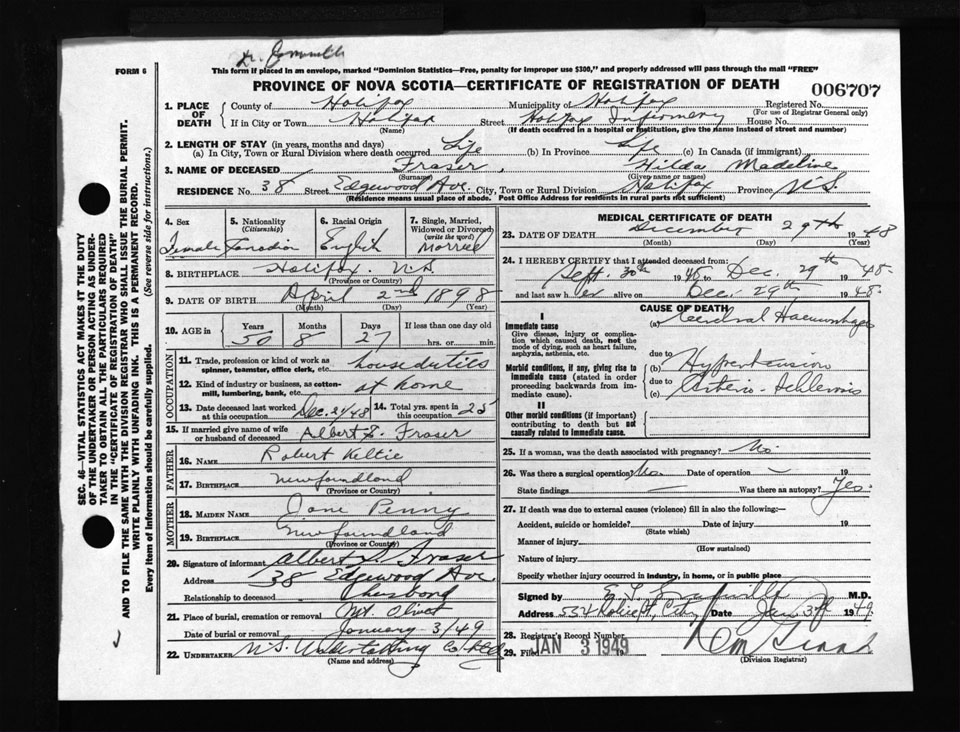 FORM 6
This form if placed in an envelope, marked "Dominion Statistics—Free, penalty for improper use $300," and properly addressed will pass through the mail "FREE"
PROVINCE OF NOVA SCOTIA—CERTIFICATE OF REGISTRATION OF DEATH
006707
1. PLACE OF DEATH
County of Halifax Municipality of Halifax Registered No.
(For use of Registrar General only)
If in City or Town Halifax Street Halifax Infirmary House No.
(Name) (If death occurred in a hospital or institution, give the name instead of street and number)
2. LENGTH OF STAY (in years, months and days)
(a) In City, Town or Rural Division where death occurred Life (b) In Province Life (c) In Canada (if immigrant)
3. NAME OF DECEASED Fraser, Hilda Madeline
(Surname) (Given name or names)
RESIDENCE No. 38 Street Edgewood Ave. City, Town or Rural Division Halifax Province N.S.
(Residence means usual place of abode. Post Office Address for residents in rural parts not sufficient)
4. Sex Female
5. Nationality (Citizenship) Canadian
6. Racial Origin English
7. Single, Married, Widowed or Divorced (write the word) Married
8. BIRTHPLACE Halifax. N.S.
(Province or Country)
9. DATE OF BIRTH April 2nd 1898
(Month) (Day) (Year)
10. AGE in Years Months Days If less than one day old
50 8 27 hrs. or min.
OCCUPATION
11. Trade, profession or kind of work as spinner, teamster, office clerk, etc. house duties
12. Kind of industry or business, as cotton-mill, lumbering, bank, etc. at home
13. Date deceased last worked at this occupation Dec. 24/48
14. Total yrs. spent in this occupation 25
15. If married give name of wife or husband of deceased Albert Fraser
FATHER
16. Name Robert Keltie
17. Birthplace Newfoundland
(Province or Country)
MOTHER
18. Maiden Name Jane Penny
19. Birthplace Newfoundland
(Province or Country)
20. Signature of informant Albert Fraser
Address 38 Edgewood Ave
Relationship to deceased husband
21. Place of burial, cremation or removal Mt. Olivet
Date of burial or removal January 3/49
22. UNDERTAKER N.S. Undertaking Co. Ltd
(Name and address)
MEDICAL CERTIFICATE OF DEATH
23. DATE OF DEATH December 29th 1948
(Month) (Day) (Year)
24. I HEREBY CERTIFY that I attended deceased from:
Sept. 30th 19 to Dec. 29th 1948
and last saw her alive on Dec. 29th 1948.
CAUSE OF DEATH
I
Immediate cause
Give disease, injury or complication which caused death, not the mode of dying, such as heart failure, asphyxia, asthenia, etc.
(a) Cerebral Haemorrhage
due to
Morbid conditions, if any, giving rise to immediate cause (stated in order proceeding backwards from immediate cause).
(b) Hypertension
due to
(c) Arterio-Sclerosis
II
Other morbid conditions (if important) contributing to death but not causally related to immediate cause.
25. If a woman, was the death associated with pregnancy? No
26. Was there a surgical operation? No. Date of operation — 19
State findings — Was there an autopsy? Yes.
27. If death was due to external causes (violence) fill in also the following:—
Accident, suicide or homicide? Date of injury 19
(State which)
Manner of injury
(How sustained)
Nature of injury
Specify whether injury occurred in industry, in home, or in public place
Signed by M.D.
Address City Date Jan 3rd 1949
28. Registrar's Record Number
29. Filed JAN 3 1949
(Division Registrar)
SEC. 46—VITAL STATISTICS ACT MAKES IT THE DUTY
OF THE UNDERTAKER OR PERSON ACTING AS UNDER-
TAKER TO OBTAIN ALL THE PARTICULARS REQUIRED
IN THE "CERTIFICATE OF REGISTRATION OF DEATH"
AND TO FILE THE SAME WITH THE DIVISION REGISTRAR WHO SHALL ISSUE THE BURIAL PERMIT.
WRITE PLAINLY WITH UNFADING INK. THIS IS A PERMANENT RECORD.
Every item of information should be carefully supplied. (See reverse side for instructions.)